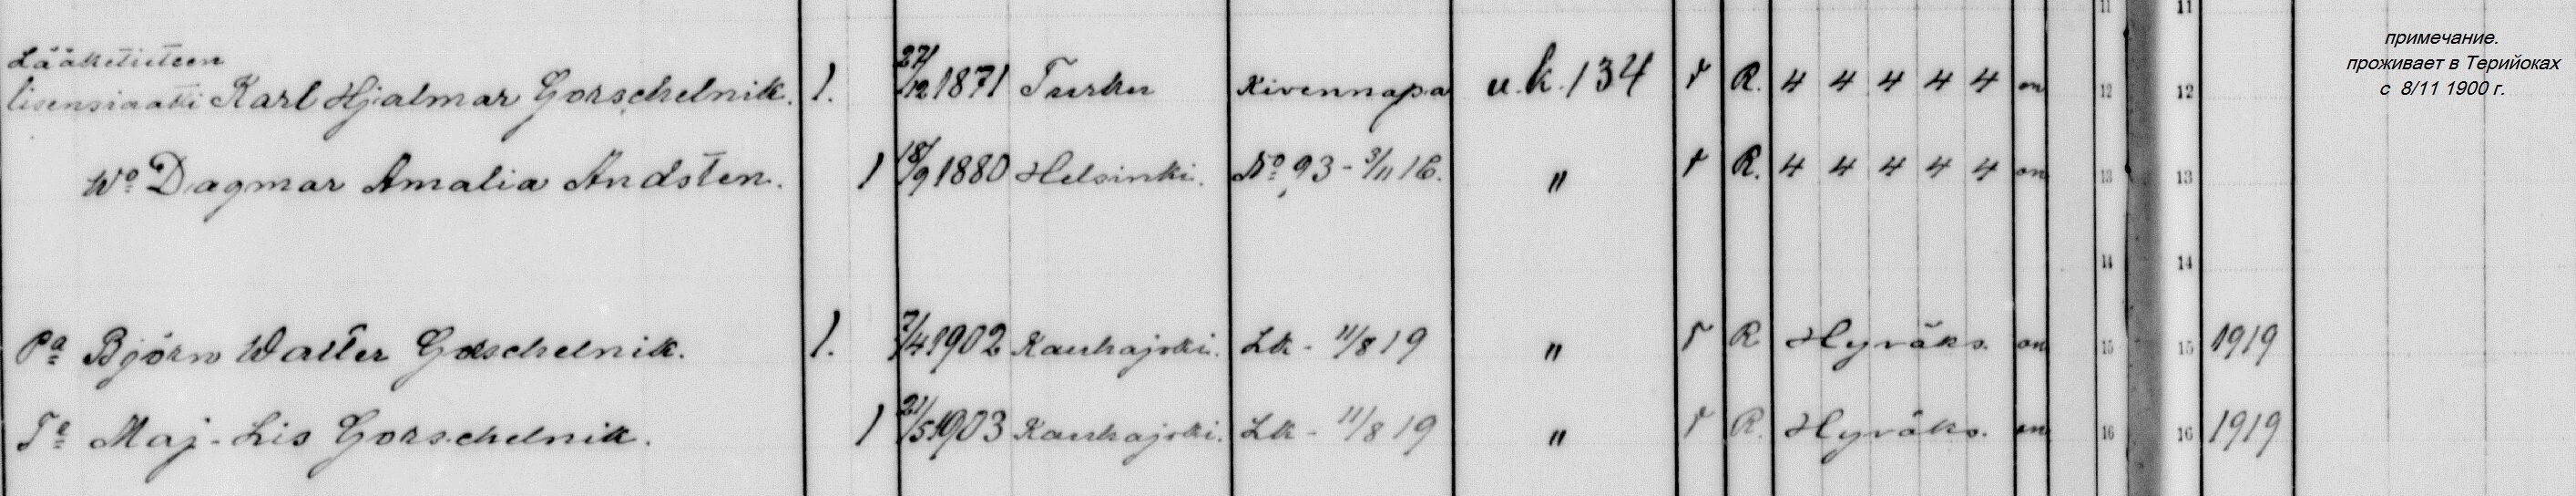 11 11
Lääketieteen
lisensiaatti Karl Hjalmar Gorschelnik. 1. 27/12 1871 Turku Kivennapa u.k. 134 r R. 4 4 4 4 4 on 12 12
Wo Dagmar Amalia Andsten. 1 18/9 1880 Helsinki. No 93 - 3/11 16. " r R. 4 4 4 4 4 on 13 13
14 14
Pa Björn Walter Gorschelnik. 1. 7/4 1902 Kauhajoki. Lk - 11/8 19 " r R Hyväks. on 15 15 1919
Te Maj-Lis Gorschelnik. 1 21/5 1903 Kauhajoki. Lk - 11/8 19 " r R. Hyväks. on 16 16 1919
примечание.
проживает в Терийоках
с 8/11 1900 г.